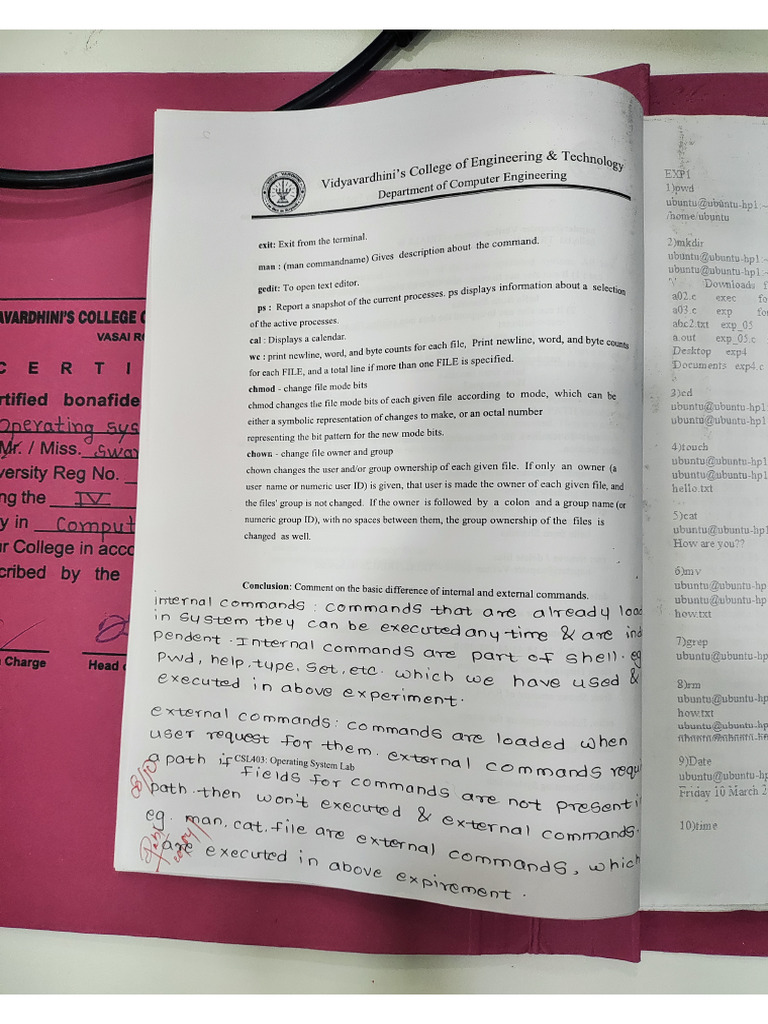 AVARDHINI'S COLLEGE
VASAI R
C E R T I
rtified bonafide
Operating sys
Mr. / Miss. Swa
versity Reg No.
ng the IV
y in Comput
r College in acco
cribed by the
Charge Head
Vidyavardhini's College of Engineering & Technology
Department of Computer Engineering
exit: Exit from the terminal.
man : (man commandname) Gives description about the command.
gedit: To open text editor.
ps : Report a snapshot of the current processes. ps displays information about a selection
of the active processes.
cal : Displays a calendar.
wc : print newline, word, and byte counts for each file, Print newline, word, and byte counts
for each FILE, and a total line if more than one FILE is specified.
chmod - change file mode bits
chmod changes the file mode bits of each given file according to mode, which can be
either a symbolic representation of changes to make, or an octal number
representing the bit pattern for the new mode bits.
chown - change file owner and group
chown changes the user and/or group ownership of each given file. If only an owner (a
user name or numeric user ID) is given, that user is made the owner of each given file, and
the files' group is not changed. If the owner is followed by a colon and a group name (or
numeric group ID), with no spaces between them, the group ownership of the files is
changed as well.
Conclusion: Comment on the basic difference of internal and external commands.
internal commands : commands that are already load
in system they can be executed any time & are ind
pendent. Internal commands are part of shell. eg
pwd, help, type, set, etc. which we have used &
executed in above experiment.
external commands: commands are loaded when
user request for them. external commands requi
a path if
CSL403: Operating System Lab
fields for commands are not present i
path. then won't executed & external commands.
eg. man, cat, file are external commands, which
are executed in above expirement.
EXP1
1)pwd
ubuntu@ubuntu-hp1:~
/home/ubuntu
2)mkdir
ubuntu@ubuntu-hp1:~
ubuntu@ubuntu-hp1:~
Downloads f
a02.c exec fo
a03.c exp for
abc2.txt exp_05
a.out exp_05.c
Desktop exp4
Documents exp4.c
3)cd
ubuntu@ubuntu-hp1
ubuntu@ubuntu-hp1
4)touch
ubuntu@ubuntu-hp1
ubuntu@ubuntu-hp1
hello.txt
5)cat
ubuntu@ubuntu-hp1
How are you??
6)mv
ubuntu@ubuntu-hp
ubuntu@ubuntu-hp
how.txt
7)grep
ubuntu@ubuntu-hp
8)rm
ubuntu@ubuntu-hp
how.txt
ubuntu@ubuntu-hp
9)Date
ubuntu@ubuntu-hp
Friday 10 March 2
10)time